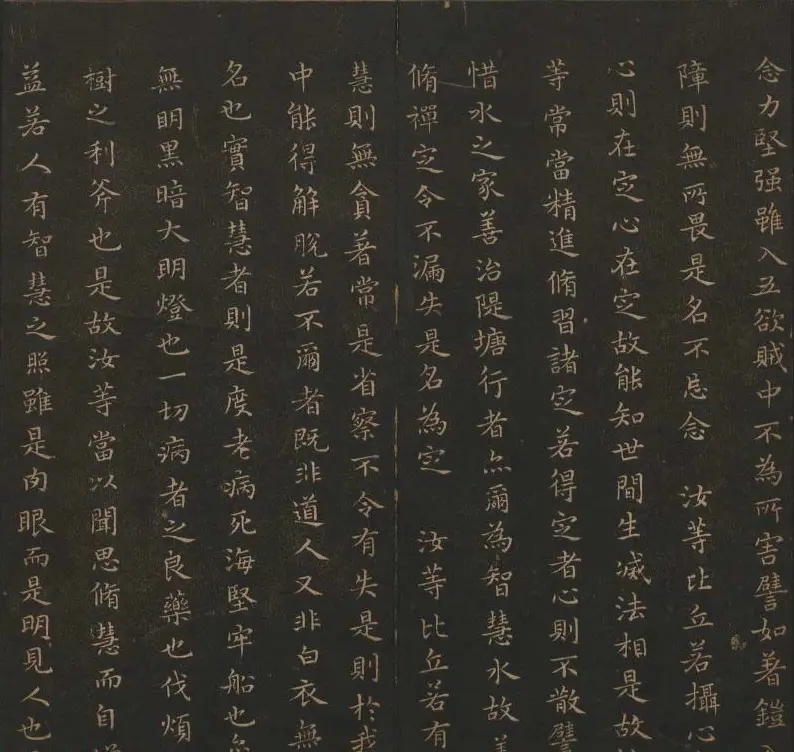 念力堅强雖入五欲賊中不為所害譬如著鎧
障則無所畏是名不忘念 汝等比丘若攝心
心則在定心在定故能知世間生滅法相是故
等常當精進脩習諸定若得定者心則不散譬
惜水之家善治隄塘行者亦爾為智慧水故善
脩禪定令不漏失是名為定 汝等比丘若有
慧則無貪著常是省察不令有失是則於我
中能得解脫若不爾者既非道人又非白衣無
名也實智慧者則是度老病死海堅牢船也
無明黑暗大明燈也一切病者之良藥也伐煩
樹之利斧也是故汝等當以聞思脩慧而自
益若人有智慧之照雖是肉眼而是明見人也